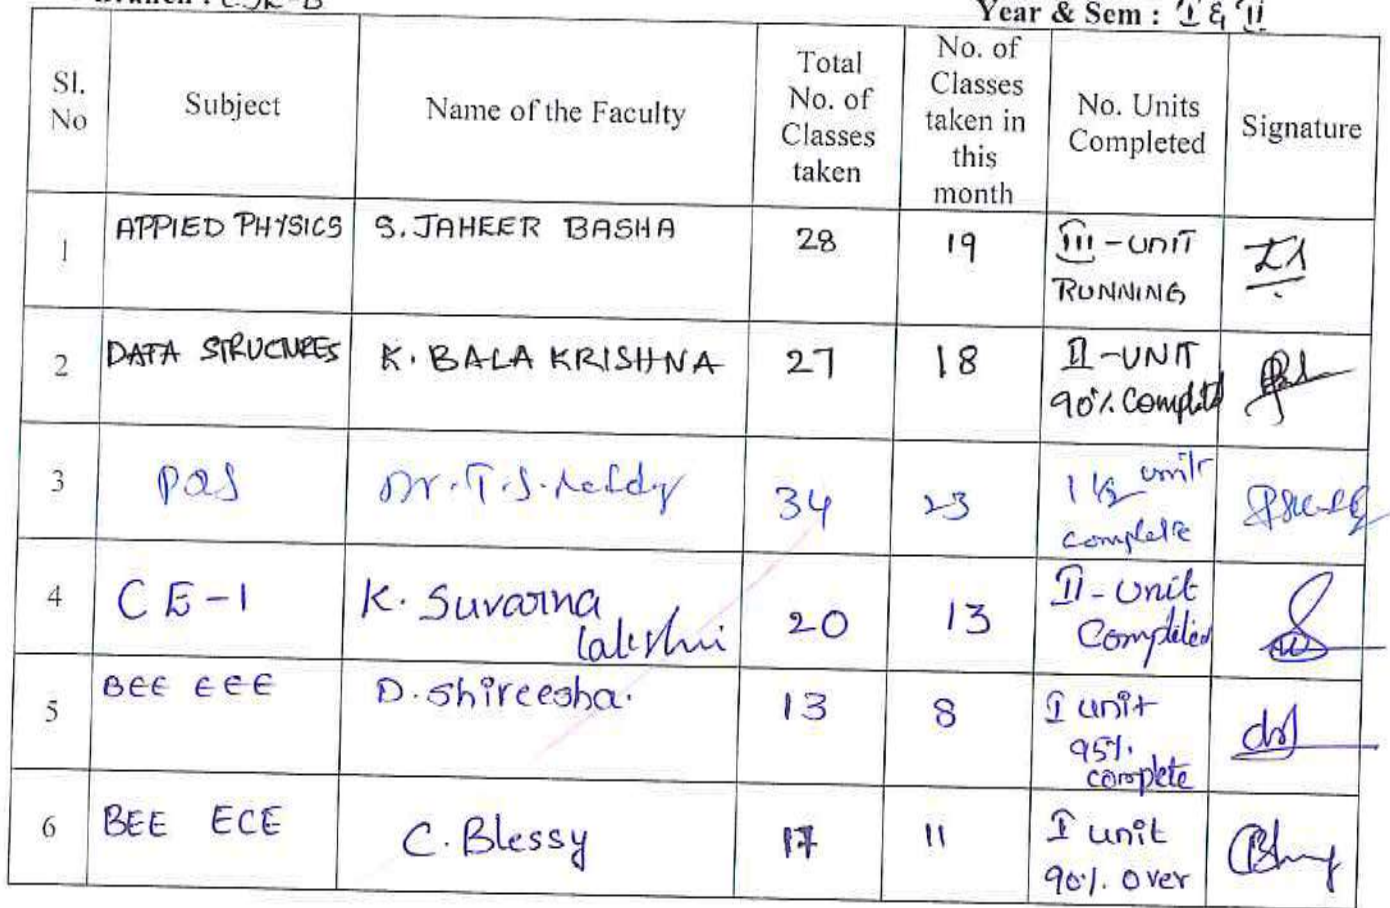 Year & Sem : I & II
Sl. No Subject Name of the Faculty Total No. of Classes taken No. of Classes taken in this month No. Units Completed Signature
1 APPIED PHYSICS S. JAHEER BASHA 28 19 III - UNIT RUNNING
2 DATA STRUCTURES K. BALA KRISHNA 27 18 II - UNIT 90% Complete
3 P&S Dr. T. S. Reddy 34 23 1 1/2 unit complete
4 CE-1 K. Suvarna lakshmi 20 13 II - Unit Completed
5 BEE EEE D. Shireesha. 13 8 I unit 95% complete
6 BEE ECE C. Blessy 17 11 I unit 90% over